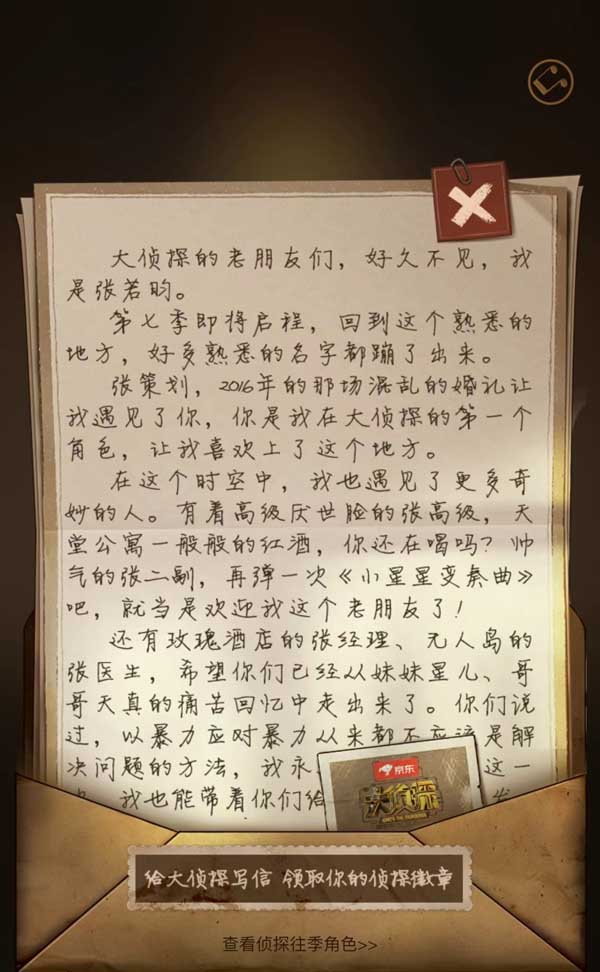 大侦探的老朋友们，好久不见，我
是张若昀。
第七季即将启程，回到这个熟悉的
地方，好多熟悉的名字都蹦了出来。
张策划，2016年的那场混乱的婚礼让
我遇见了你，你是我在大侦探的第一个
角色，让我喜欢上了这个地方。
在这个时空中，我也遇见了更多奇
妙的人。有着高级厌世脸的张高级，天
堂公寓一般般的红酒，你还在喝吗？帅
气的张二副，再弹一次《小星星变奏曲》
吧，就当是欢迎我这个老朋友了！
还有玫瑰酒店的张经理、无人岛的
张医生，希望你们已经从妹妹星儿、哥
哥天真的痛苦回忆中走出来了。你们说
过，以暴力应对暴力从来都不应该是解
决问题的方法，我永 这一
我也能带着你们给
京东
大侦探
给大侦探写信 领取你的侦探徽章
查看侦探往季角色>>